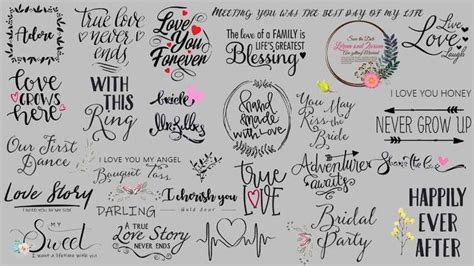 Adore
true love
never
ends
Love
You
Forever
MEETING YOU WAS THE BEST DAY OF MY LIFE
The love of a FAMILY is
LIFE'S GREATEST
Blessing
Save the Date
Live
Love
Laugh
Love
grows
here
WITH
THIS
Ring
hand
made
with love
You May
Kiss the
Bride
I LOVE YOU HONEY
NEVER GROW UP
Our First
Dance
I LOVE YOU MY ANGEL
Bouquet Toss
true
LOVE
Adventure
awaits
Love Story
DARLING
I cherish you
HAPPILY
EVER
AFTER
MY
Sweet
I want a lifetime with you
A true
LOVE Story
NEVER ENDS
Bridal
Party